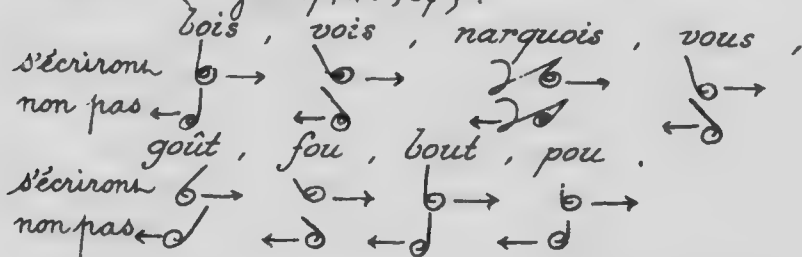 bois, vois, narquois, vous,
s'écrirons
non pas
goût, fou, bout, pou.
s'écrirons
non pas